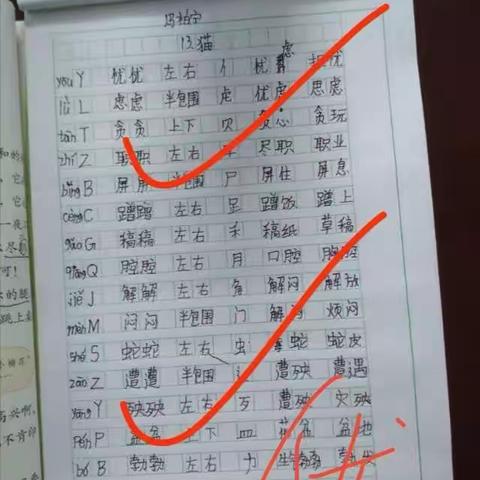 13.猫
yōu Y 忧忧 左右 忄 忧虑 担忧
lǜ L 虑虑 半包围 虍 忧虑 思虑
tān T 贪贪 上下 贝 贪心 贪玩
zhí Z 职职 左右 耳 尽职 职业
bǐng B 屏屏 半包围 尸 屏住 屏息
cèng C 蹭蹭 左右 足 蹭饭 蹭上
gǎo G 稿稿 左右 禾 稿纸 草稿
qiāng Q 腔腔 左右 月 口腔 胸腔
jiě J 解解 左右 角 解闷 解放
mèn M 闷闷 半包围 门 解闷 烦闷
shé S 蛇蛇 左右 虫 蛇 蛇皮
zāo Z 遭遭 半包围 遭殃 遭遇
yāng Y 殃殃 左右 歹 遭殃 灾殃
pén P 盆盆 上下 皿 花盆 盆地
bó B 勃勃 左右 力 生勃勃 勃发